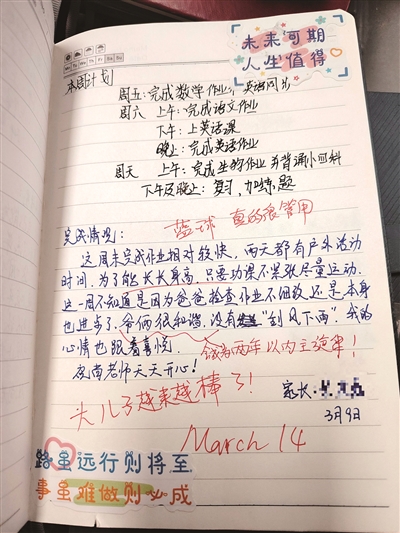 未来可期
人生值得
本周计划
周五:完成数学作业,英语阅书
周六 上午:完成语文作业
下午:上英语课
晚上:完成英语作业
周天 上午:完成生物作业 并背诵小四科
下午及晚上:复习,加练题
篮球 真的很管用
完成情况:
这周末完成作业相对较快,两天都有户外活动
时间,为了能长长身高,只要功课不紧张尽量运动。
这一周不知道是因为爸爸检查作业不细致还是本身
也进步了,爷俩很和谐,没有"刮风下雨",我的
心情也跟着喜悦。
长高两年以内主旋律!
老师天天开心!
大儿子越来越棒了!
家长:
3月9日
March 14
路虽远行则将至
事虽难做则必成